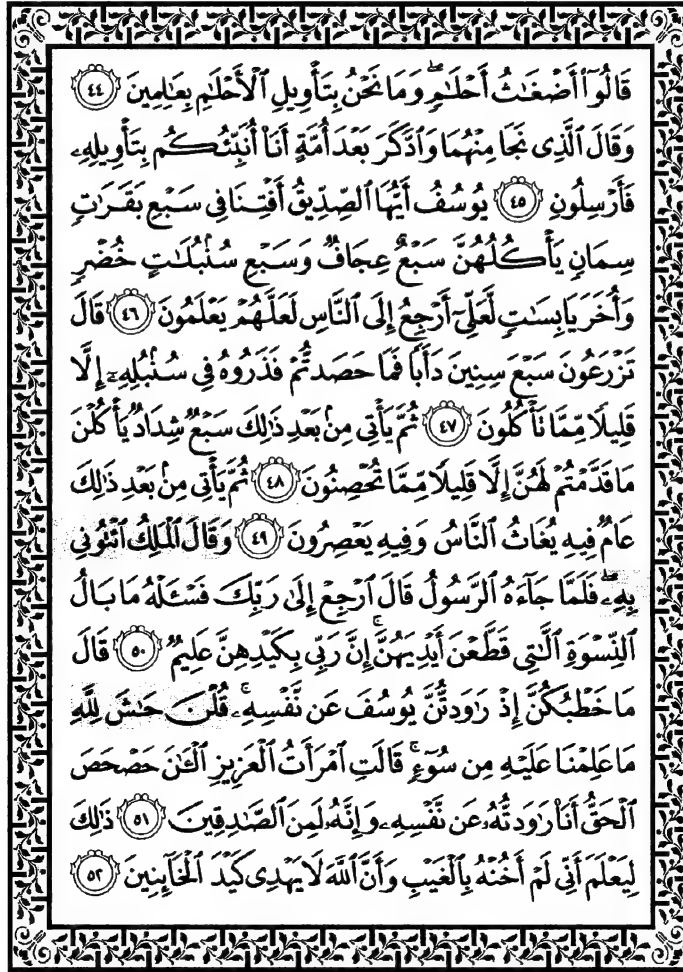 قَالُوٓا۟ أَضْغَٰثُ أَحْلَٰمٍۖ وَمَا نَحْنُ بِتَأْوِيلِ ٱلْأَحْلَٰمِ بِعَٰلِمِينَ ۝٤٤
وَقَالَ ٱلَّذِى نَجَا مِنْهُمَا وَٱدَّكَرَ بَعْدَ أُمَّةٍ أَنَا۠ أُنَبِّئُكُم بِتَأْوِيلِهِۦ
فَأَرْسِلُونِ ۝٤٥ يُوسُفُ أَيُّهَا ٱلصِّدِّيقُ أَفْتِنَا فِى سَبْعِ بَقَرَٰتٍ
سِمَانٍ يَأْكُلُهُنَّ سَبْعٌ عِجَافٌ وَسَبْعِ سُنۢبُلَٰتٍ خُضْرٍ
وَأُخَرَ يَابِسَٰتٍ لَّعَلِّىٓ أَرْجِعُ إِلَى ٱلنَّاسِ لَعَلَّهُمْ يَعْلَمُونَ ۝٤٦ قَالَ
تَزْرَعُونَ سَبْعَ سِنِينَ دَأَبًا فَمَا حَصَدتُّمْ فَذَرُوهُ فِى سُنۢبُلِهِۦٓ إِلَّا
قَلِيلًا مِّمَّا تَأْكُلُونَ ۝٤٧ ثُمَّ يَأْتِى مِنۢ بَعْدِ ذَٰلِكَ سَبْعٌ شِدَادٌ يَأْكُلْنَ
مَا قَدَّمْتُمْ لَهُنَّ إِلَّا قَلِيلًا مِّمَّا تُحْصِنُونَ ۝٤٨ ثُمَّ يَأْتِى مِنۢ بَعْدِ ذَٰلِكَ
عَامٌ فِيهِ يُغَاثُ ٱلنَّاسُ وَفِيهِ يَعْصِرُونَ ۝٤٩ وَقَالَ ٱلْمَلِكُ ٱئْتُونِى
بِهِۦۖ فَلَمَّا جَآءَهُ ٱلرَّسُولُ قَالَ ٱرْجِعْ إِلَىٰ رَبِّكَ فَسْـَٔلْهُ مَا بَالُ
ٱلنِّسْوَةِ ٱلَّٰتِى قَطَّعْنَ أَيْدِيَهُنَّۚ إِنَّ رَبِّى بِكَيْدِهِنَّ عَلِيمٌ ۝٥٠ قَالَ
مَا خَطْبُكُنَّ إِذْ رَٰوَدتُّنَّ يُوسُفَ عَن نَّفْسِهِۦۚ قُلْنَ حَٰشَ لِلَّهِ
مَا عَلِمْنَا عَلَيْهِ مِن سُوٓءٍۚ قَالَتِ ٱمْرَأَتُ ٱلْعَزِيزِ ٱلْـَٰٔنَ حَصْحَصَ
ٱلْحَقُّ أَنَا۠ رَٰوَدتُّهُۥ عَن نَّفْسِهِۦ وَإِنَّهُۥ لَمِنَ ٱلصَّٰدِقِينَ ۝٥١ ذَٰلِكَ
لِيَعْلَمَ أَنِّى لَمْ أَخُنْهُ بِٱلْغَيْبِ وَأَنَّ ٱللَّهَ لَا يَهْدِى كَيْدَ ٱلْخَآئِنِينَ ۝٥٢